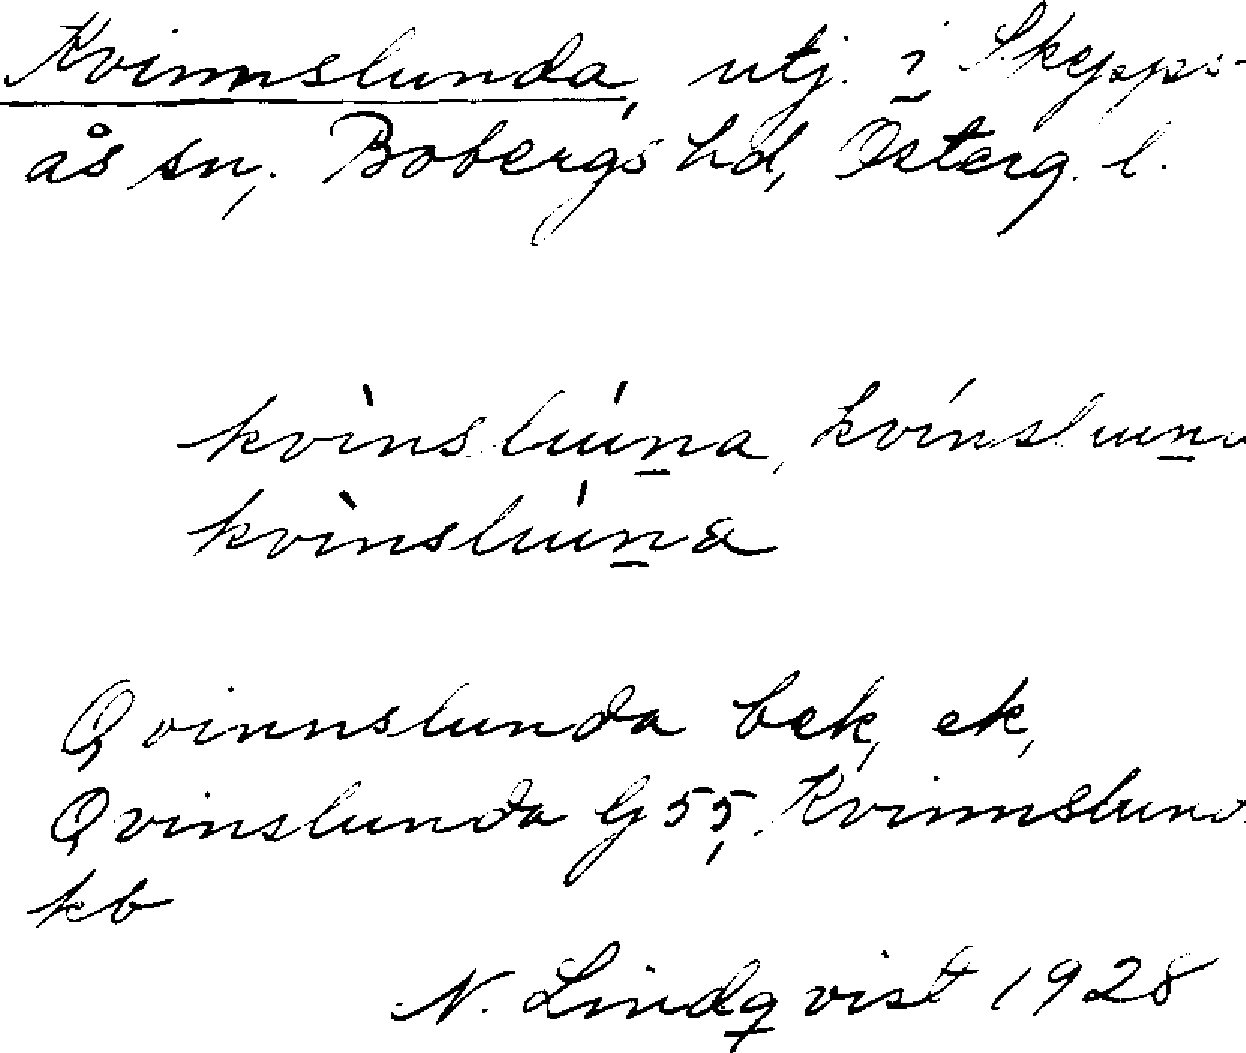 Kvinnslunda, utj. i Skepps-
ås sn, Bobergs hd, Österg. l.
kvìnslúna, kvínsluna
kvìnslúna
Qvinnslunda bek, ek,
Qvinslunda G 55, Kvinnslunda
kb
N. Lindqvist 1928